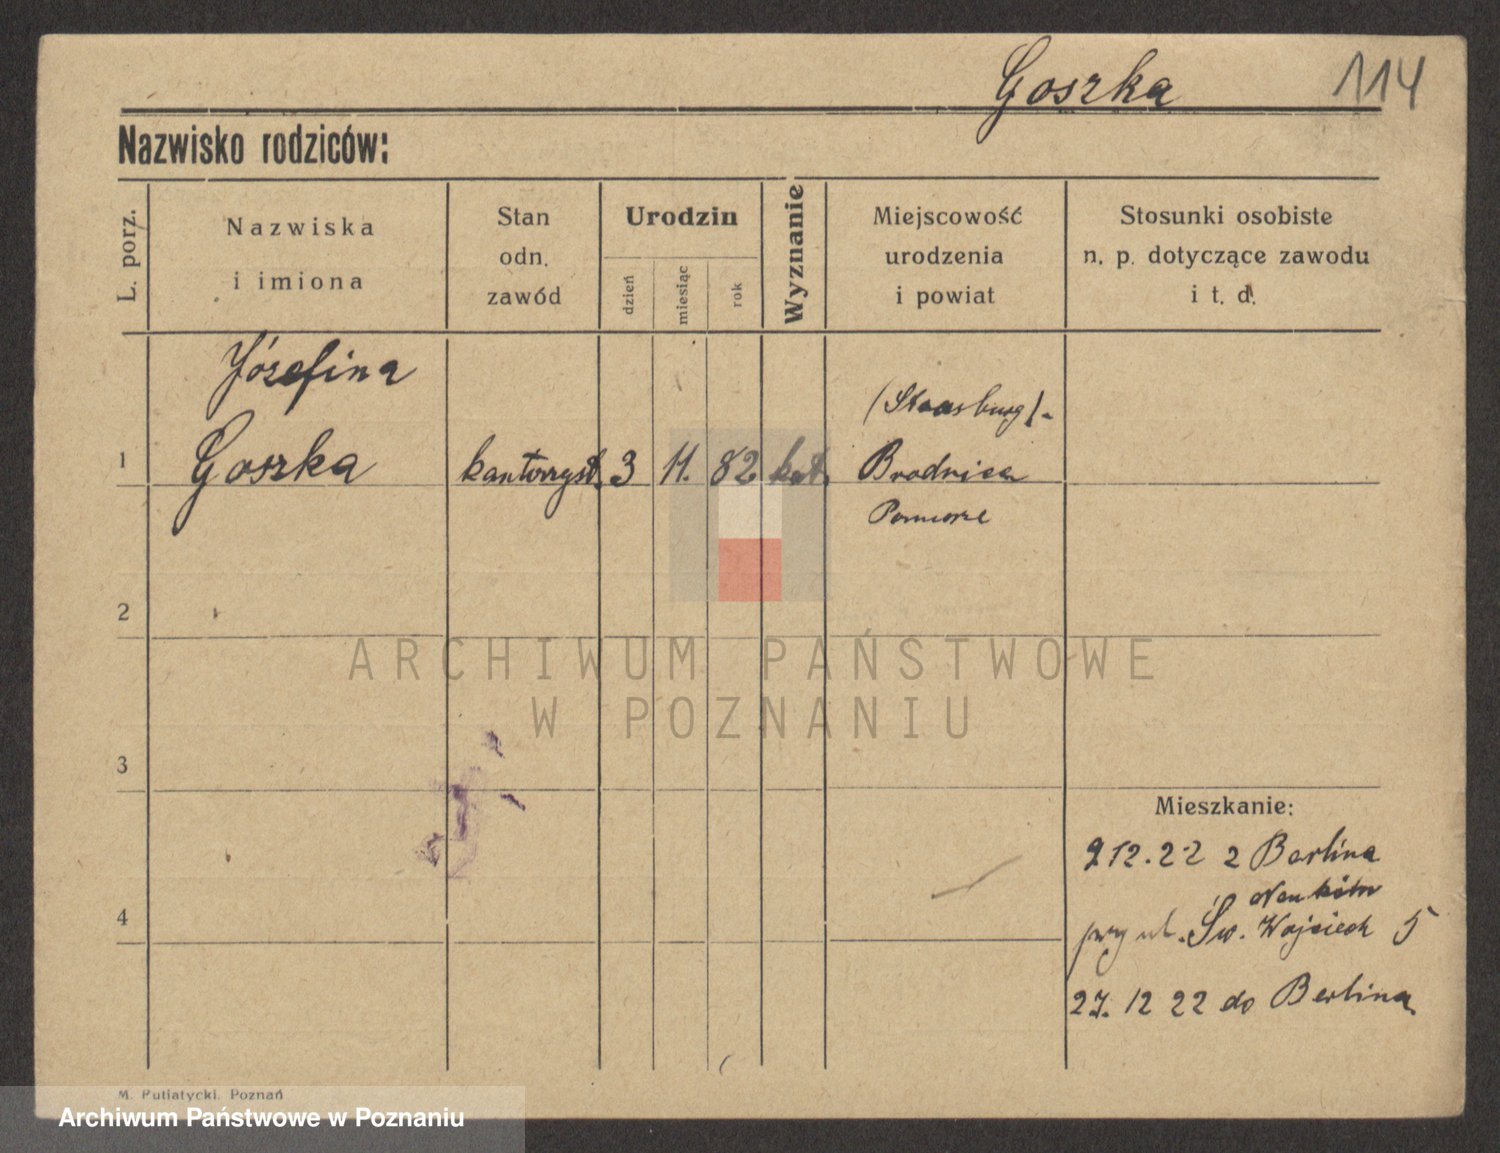 Goszka 114
Nazwisko rodziców:
L. porz.
Nazwiska
i imiona
Stan
odn.
zawód
Urodzin
dzień
miesiąc
rok
Wyznanie
Miejscowość
urodzenia
i powiat
Stosunki osobiste
n. p. dotyczące zawodu
i t. d.
Józefina
(Strasburg)-
1 Goszka kantorzyst. 3 11. 82 kat. Brodnica
Pomorze
2
ARCHIWUM PAŃSTWOWE
W POZNANIU
3
Mieszkanie:
9 12. 22 z Berlina
4
przy ul. Św. Wojciech 5
27. 12 22 do Berlina
M. Putiatycki. Poznań
Archiwum Państwowe w Poznaniu